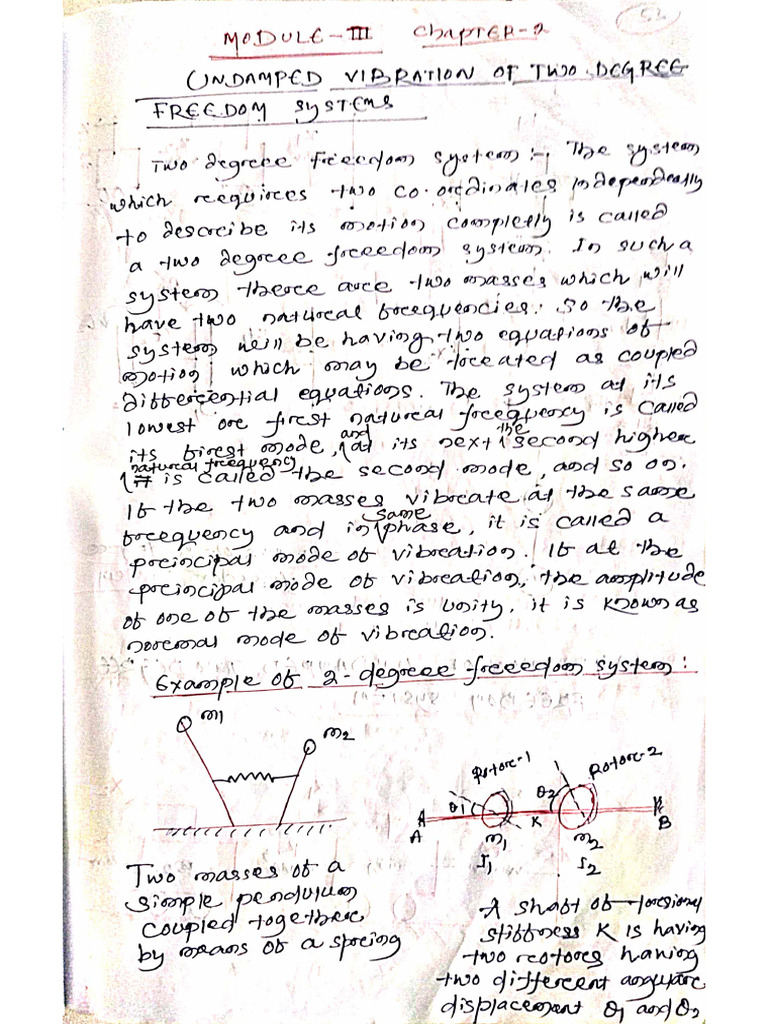 53
MODULE-III Chapter-2
UNDAMPED VIBRATION OF TWO DEGREE
FREEDOM SYSTEMS
Two degree freedom system:-, The system
which requires two co-ordinates Independently
to describe its motion completly is called
a two degree freedom system. In such a
system there are two masses which will
have two natural frequencies. So the
system will be having two equations of
motion which may be treated as coupled
differential equations. The system at its
lowest or first natural frequency is called
its first mode, and at its next the second higher
natural frequency it is called the second mode, and so on.
If the two masses vibrate at the same
frequency and in same phase, it is called a
principal mode of vibration. If at the
principal mode of vibration, the amplitude
of one of the masses is unity, it is known as
normal mode of vibration.
Example of 2-degree freedom system:
m1
m2
Rotor-1
Rotor-2
θ1
θ2
A
K
B
m1
m2
I1
I2
Two masses of a
simple pendulum
coupled together
by means of a spring
A shaft of torsional
stiffness K is having
two rotors having
two different angular
displacement θ1 and θ2